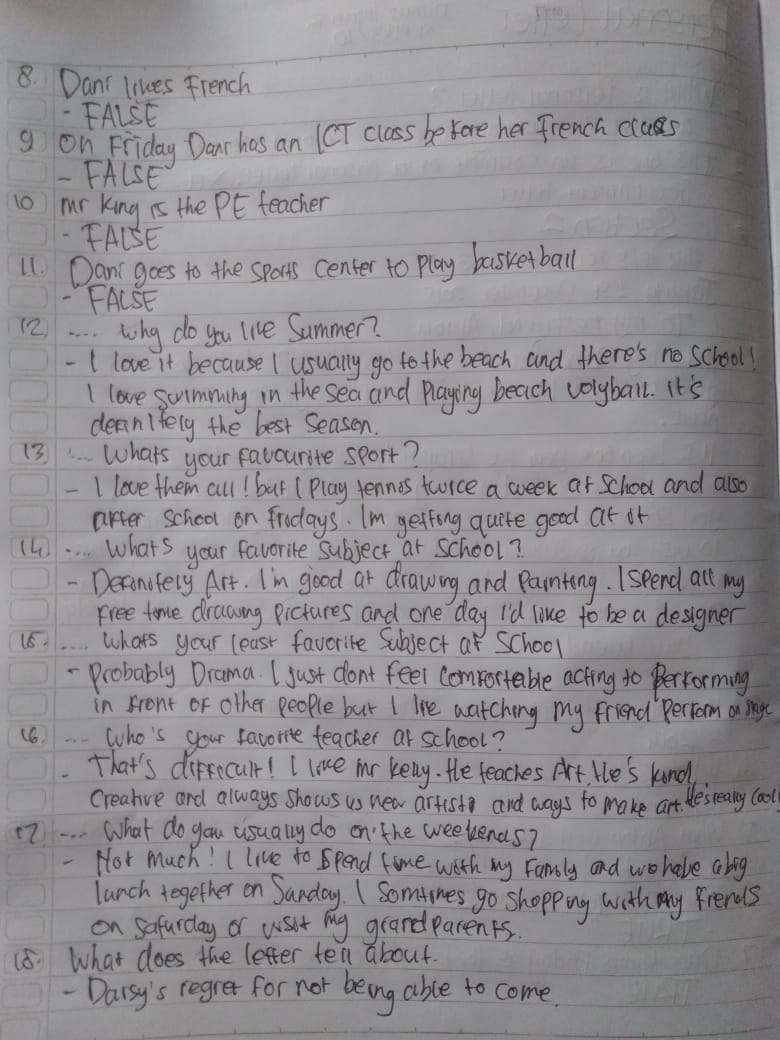 8. Dani likes French
- FALSE
9 On Friday Dani has an ICT class before her French class
- FALSE
10 Mr King is the PE teacher
- FALSE
11. Dani goes to the sports center to play basketball
- FALSE
12 .... why do you like Summer?
- I love it because I usually go to the beach and there's no school!
I love swimming in the sea and playing beach volyball. it's
definitely the best season.
13 .... Whats your favourite sport?
- I love them all! but I play tennis twice a week at school and also
after school on fridays. Im getting quite good at it
14 .... Whats your favorite subject at school?
- Definitely Art. I'm good at drawing and painting. I spend all my
free time drawing pictures and one day I'd like to be a designer
15. .... Whats your least favorite Subject at School
- Probably Drama. I just dont feel comfortable acting to performing
in front of other people but I like watching my friend perform on stage
16. .... Who's your favorite teacher at school?
- That's difficult! I like mr kelly. He teaches Art. He's kind,
Creative and always shows us new artists and ways to make art. He's really cool!
17 .... What do you usually do on the weekends?
- Not much! I like to spend time with my family and we habe a big
lunch together on Sanday. I Somtimes go shopping with my friends
on saturday or visit my grandparents.
18. What does the letter tell about.
- Darsy's regret for not being able to come.